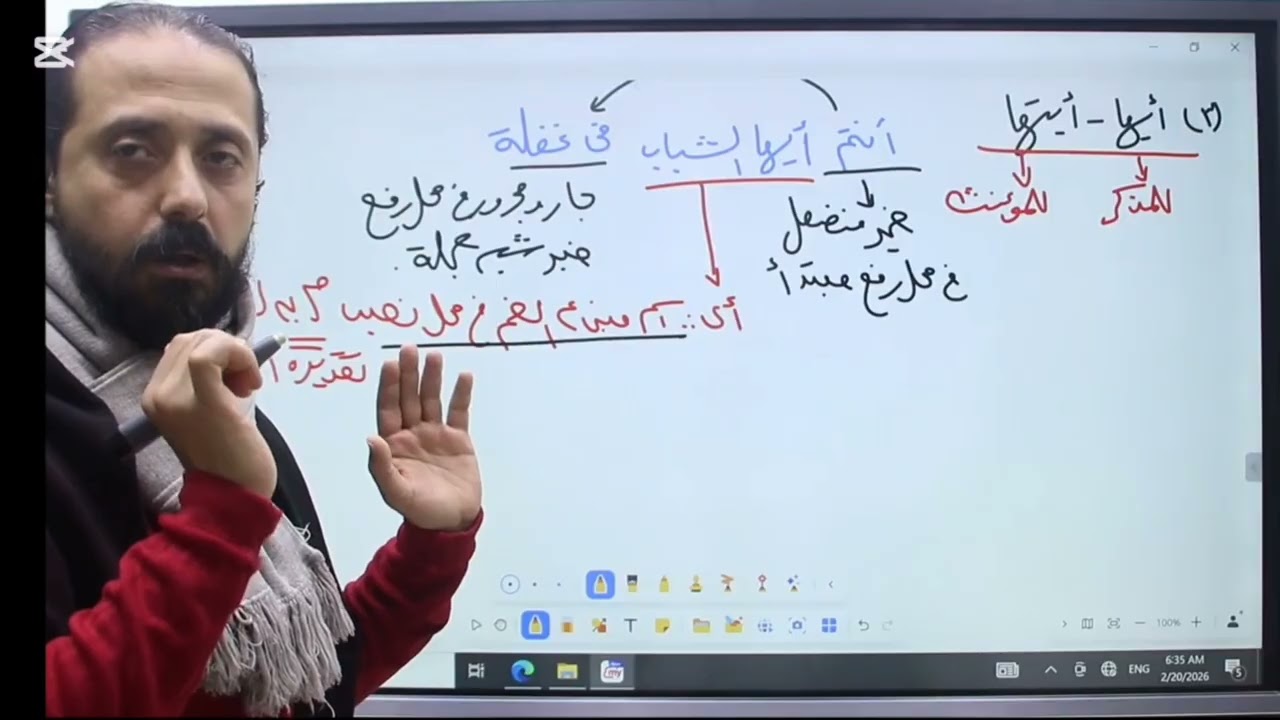 (٣) أيها - أيتها
للمذكر
للمؤنث
أنتم أيها الشباب فى غفلة
ضمير منفصل
فى محل رفع مبتدأ
جار ومجرور فى محل رفع
خبر شبه جملة.
أى: اسم مبنى على الضم فى محل نصب م به
تقديره أ
100%
ENG
6:35 AM
2/20/2026
5